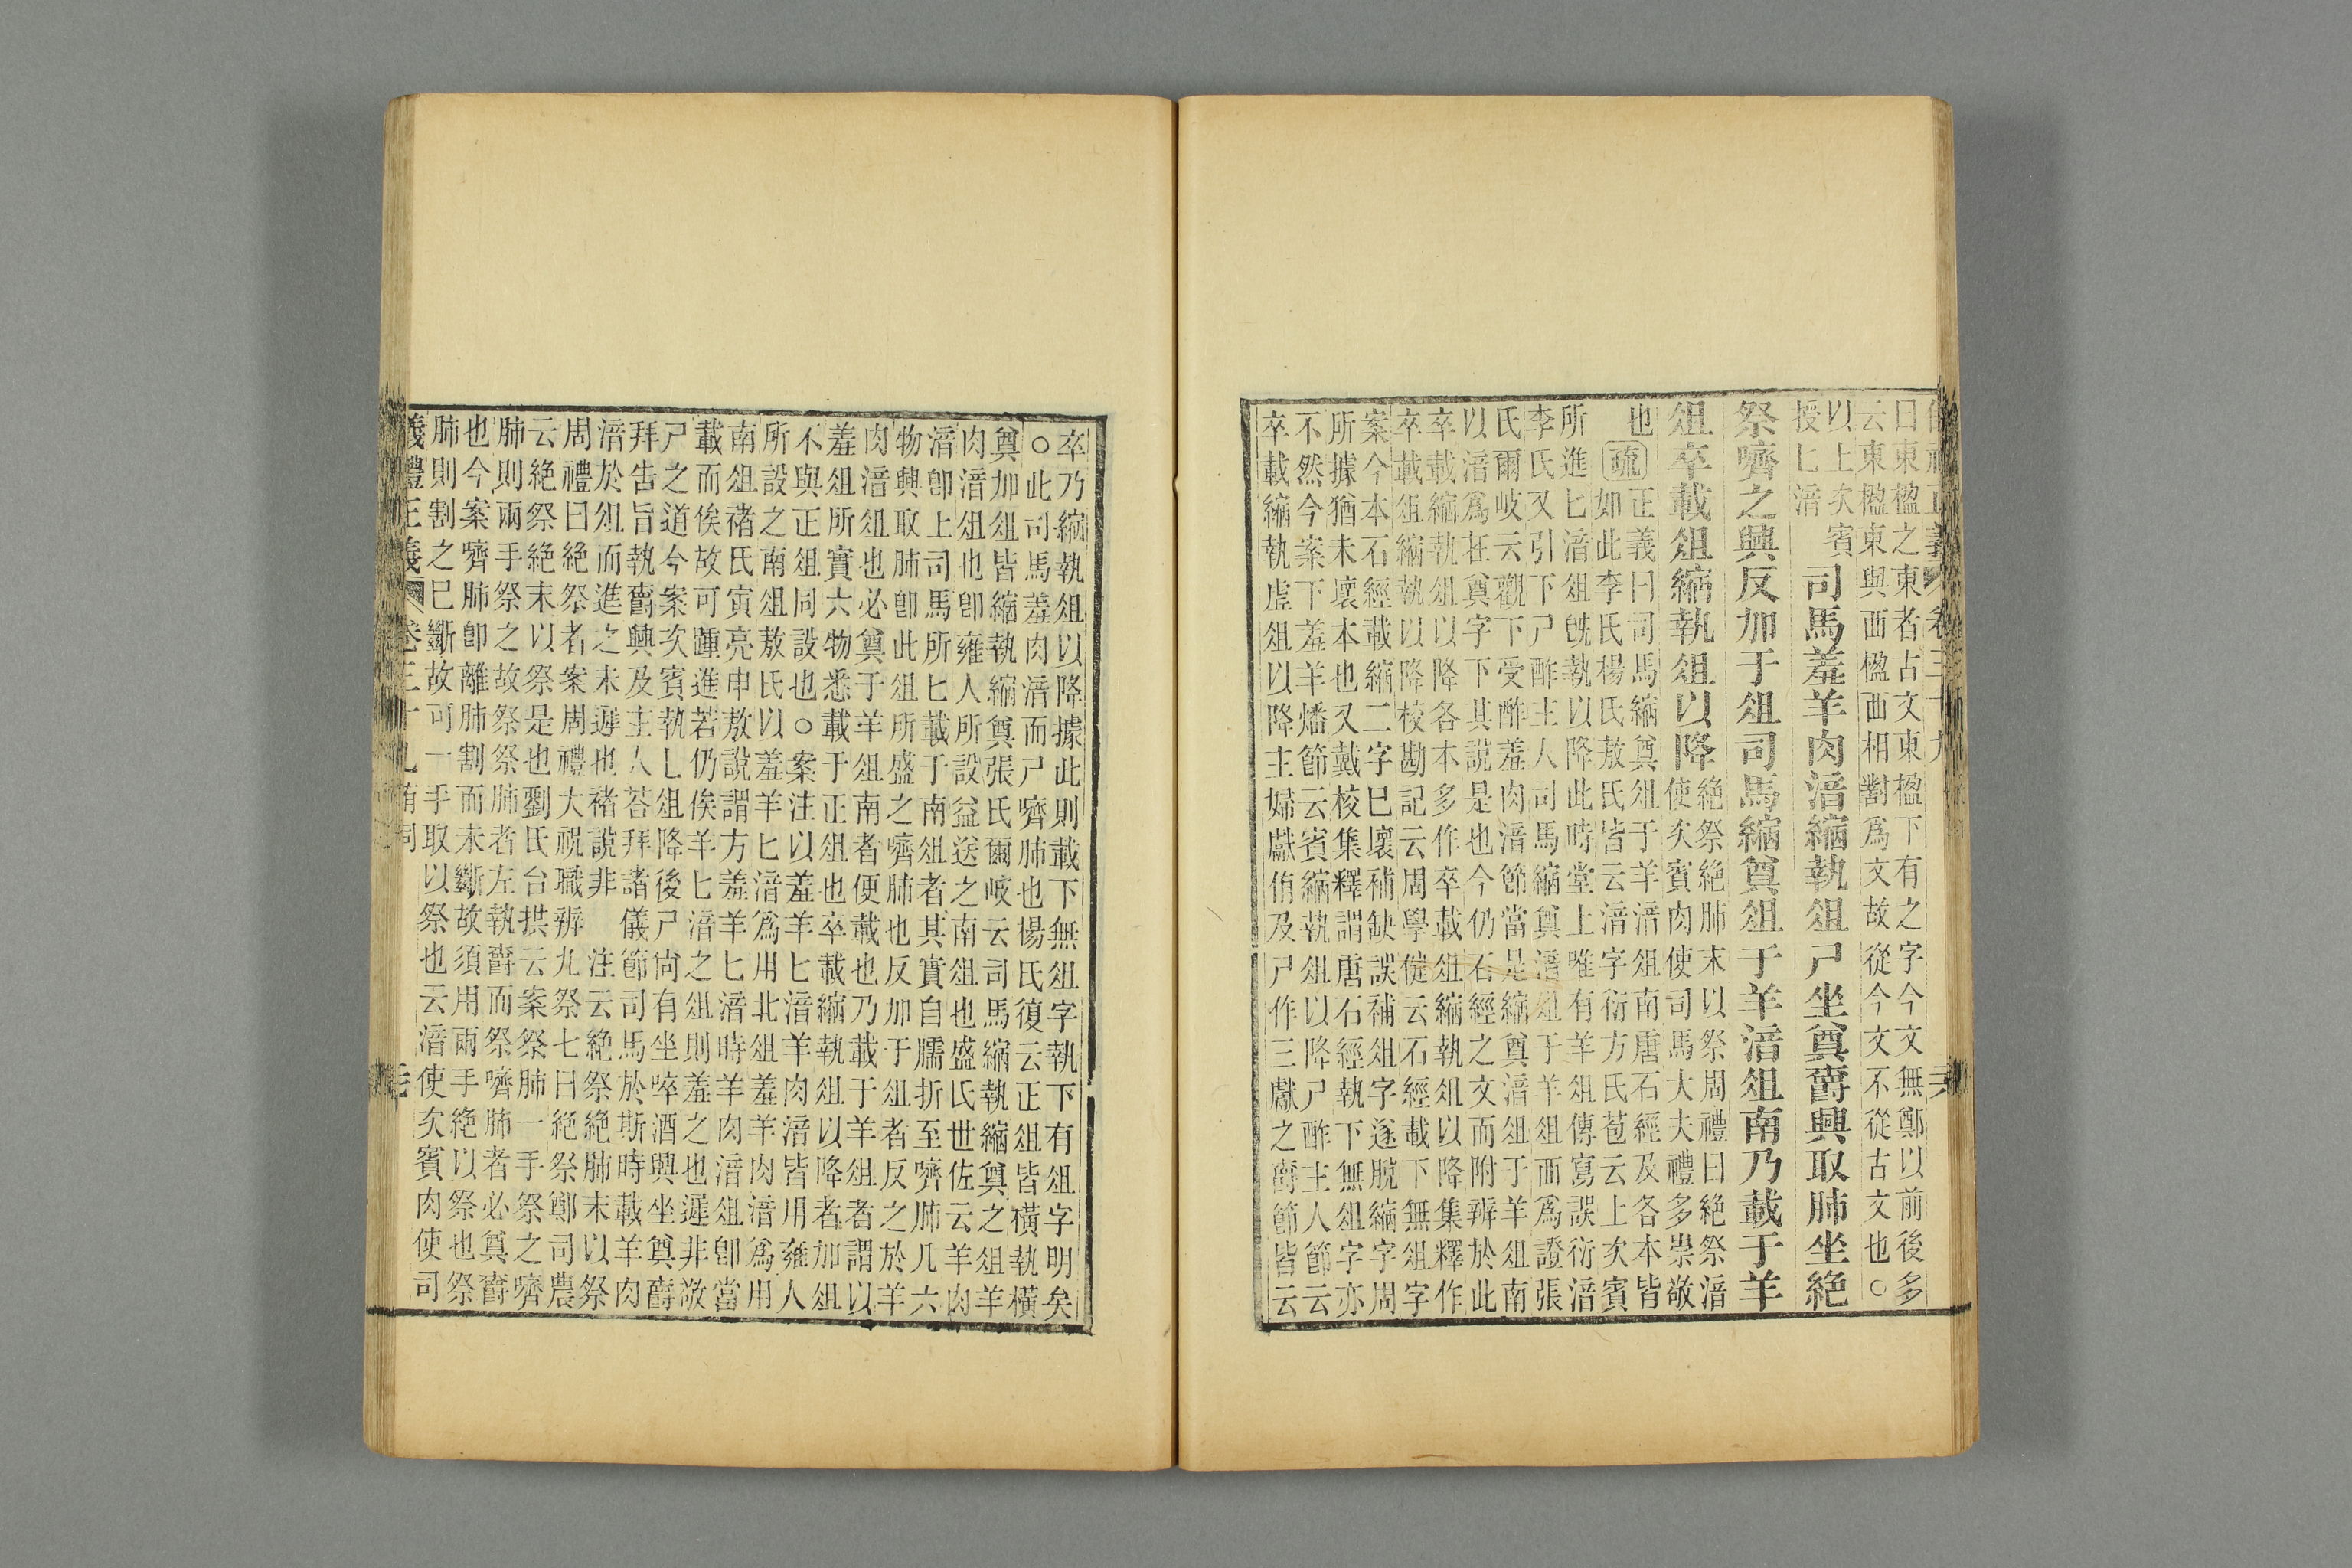 曰東楹之東者古文東楹下有之字今文無鄭以前後多
云東楹東與西楹西相對爲文故從今文不從古文也○
以上次賓
授匕湆
司馬羞羊肉湆縮執俎尸坐奠爵興取肺坐絕
祭嚌之興反加于俎司馬縮奠俎于羊湆俎南乃載于羊
俎卒載俎縮執俎以降
絶祭絶肺末以祭周禮曰絶祭湆
使次賓肉使司馬大夫禮多崇敬
也
疏
正義曰司馬縮奠俎于羊湆俎南唐石經及各本皆
如此李氏楊氏敖氏皆云湆字衍方氏苞云上次賓
所進匕湆俎旣執以降此時堂上唯有羊俎傳寫誤衍湆
李氏又引下尸酢主人司馬縮奠湆俎于羊俎而爲證張
氏爾岐云觀下受酢羞肉湆節當是縮奠湆俎于羊俎南
以湆爲在奠字下其說是也今仍石經之文而附辨於此
卒載縮執俎以降各本多作卒載俎縮執俎以降集釋作
卒載俎縮執以降校勘記云周學健云石經載下無俎字
案今本石經載縮二字已壞補缺誤補俎字遂脫縮字周
所據猶未壞本也又戴校集釋謂唐石經執下無俎字亦
不然今案下羞羊燔節云賓縮執俎以降尸酢主人節云
卒載縮執虛俎以降主婦獻侑及尸作三獻之爵節皆云
卒乃縮執俎以降據此則載下無俎字執下有俎字明矣
○此司馬羞肉湆而尸嚌肺也楊氏復云正俎皆橫執橫
奠加俎皆縮執縮奠張氏爾岐云司馬縮執縮奠之俎羊
肉湆俎也卽雍人所設益送之南俎也盛氏世佐云羊肉
湆卽上司馬所匕載于南俎者其實自臑折至嚌肺凡六
物興取肺卽此俎所盛之嚌肺也反加于俎者反之於羊
肉湆俎也必奠于羊俎南者便載也乃載于羊俎者謂以
羞俎所實六物悉載于正俎也卒載縮執俎以降者加俎
不與正俎同設也○案注以羞羊匕湆羊肉湆皆用雍人
所設之南俎敖氏以羞羊匕湆爲用北俎羞羊肉湆爲用
南俎褚氏寅亮申敖說謂方羞羊匕湆時羊肉湆俎卽當
載而俟故可踵進若仍俟羊匕湆之俎則羞之也遲非敬
尸之道今案次賓執匕俎降後尸尙有坐啐酒興坐奠爵
拜告旨執爵興及主人荅拜諸儀節司馬於斯時載羊肉
湆於俎而進之未遲也褚說非　注云絕祭絕肺末以祭
周禮曰絕祭者案周禮大祝職辨九祭七曰絕祭鄭司農
云絕祭絕末以祭是也劉氏台拱云案祭肺一手祭之嚌
肺則兩手祭之故祭祭肺者左執爵而祭嚌肺者必奠爵
也今案嚌肺卽離肺割而未斷故須用兩手絕以祭也祭
肺則割之已斷故可一手取以祭也云湆使次賓肉使司
儀禮正義 卷三十九 有司